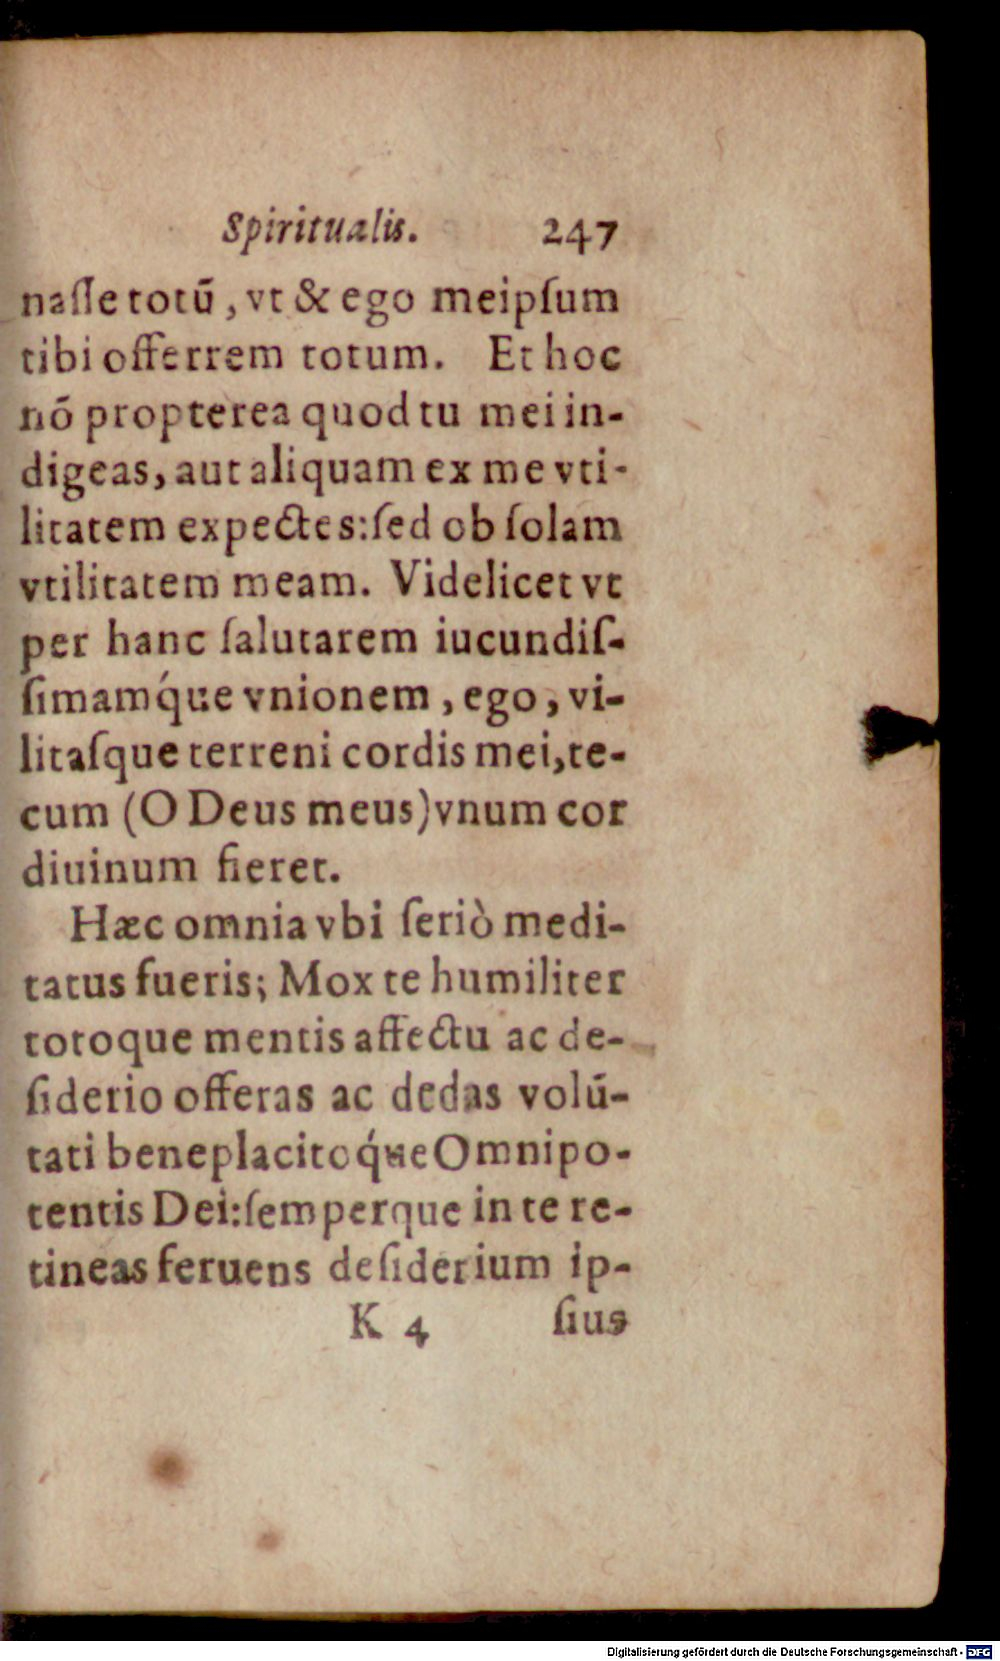 Spiritualis. 247
naſſe totū, vt & ego meipſum
tibi offerrem totum. Et hoc
nō propterea quod tu mei in-
digeas, aut aliquam ex me vti-
litatem expectes: ſed ob ſolam
vtilitatem meam. Videlicet vt
per hanc ſalutarem iucundiſ-
ſimamq́ue vnionem, ego, vi-
litaſque terreni cordis mei, te-
cum (O Deus meus) vnum cor
diuinum fieret.
Hæc omnia vbi ſeriò medi-
tatus fueris; Mox te humiliter
totoque mentis affectu ac de-
ſiderio offeras ac dedas volū-
tati beneplacitoq́ue Omnipo-
tentis Dei: ſemperque in te re-
tineas feruens deſiderium ip-
K 4 ſius
Digitalisierung gefördert durch die Deutsche Forschungsgemeinschaft - DFG